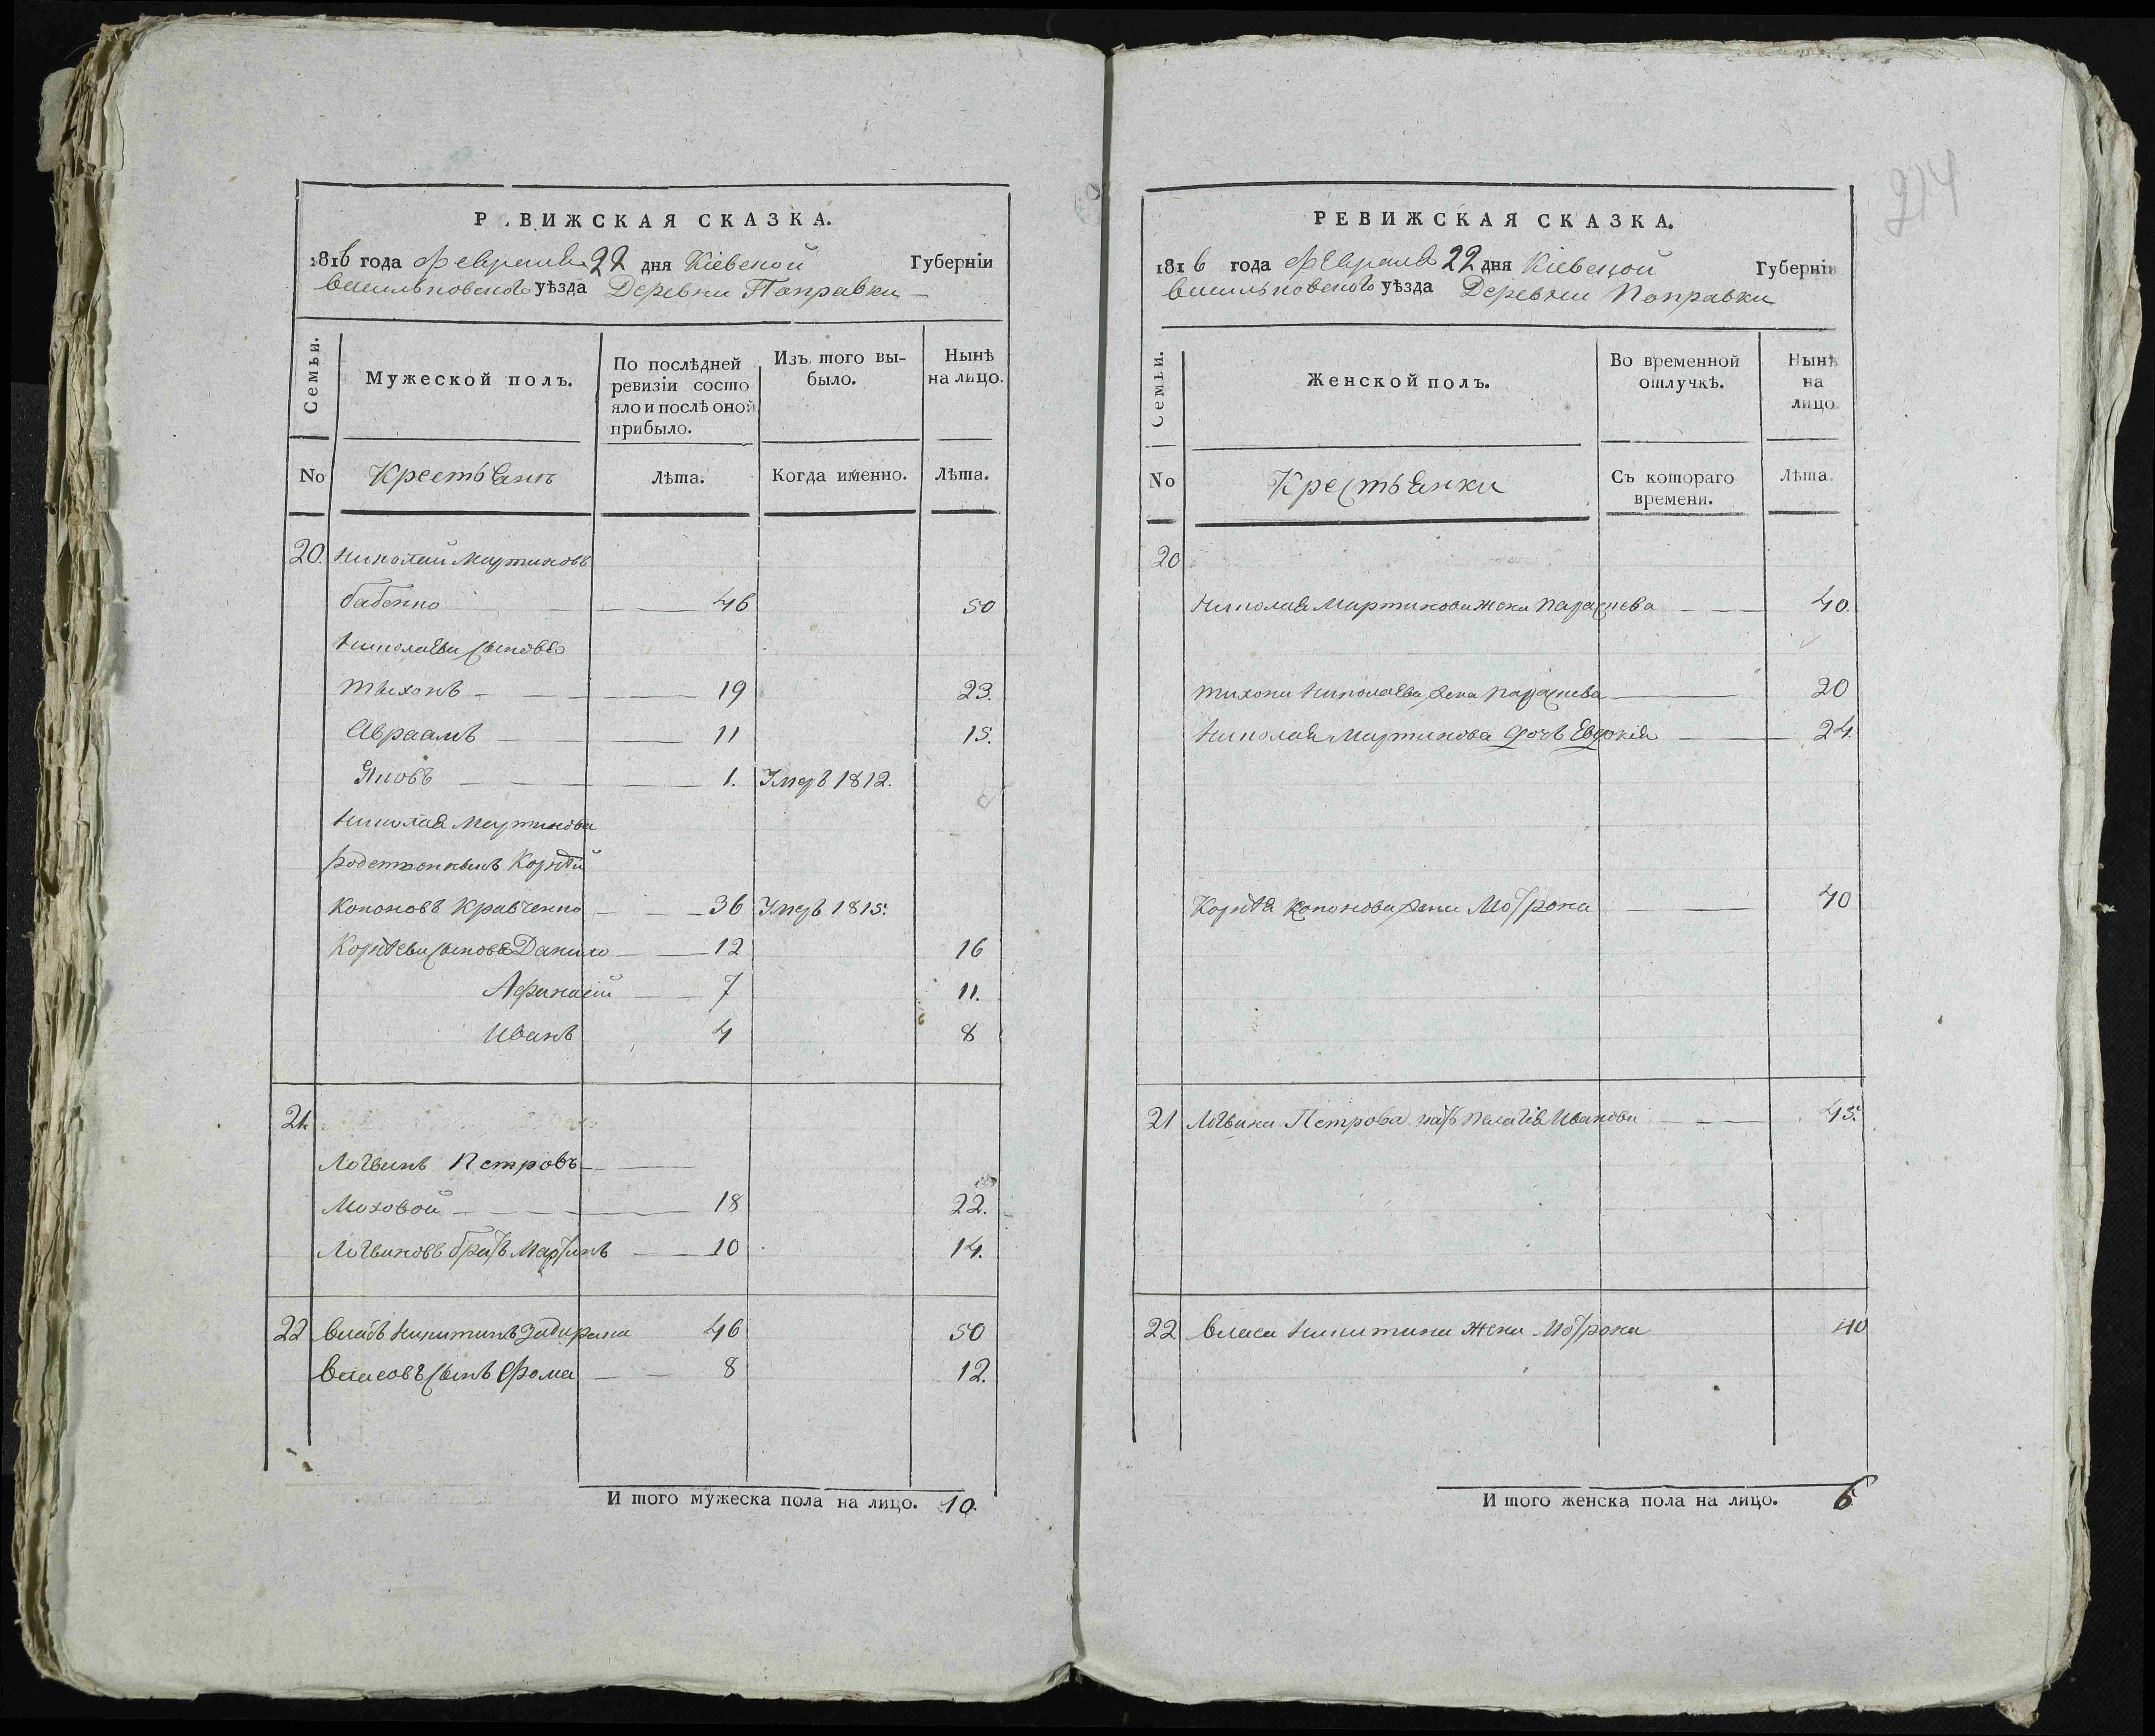 РЕВИЖСКАЯ СКАЗКА.
1816 года Февраля 22 дня Кіевской Губерніи
Васильковского уѣзда Деревни Поправки
Семьи.
Мужеской полъ.
По послѣдней
ревизіи состо
яло и послѣ оной
прибыло.
Изъ того вы-
было.
Нынѣ
на лицо.
No Крестьянъ Лѣта. Когда именно. Лѣта.
20. Николай Мартиновъ
бабенко 46 50
Николаевы сыновья
Тихонъ 19 23.
Авраамъ 11 15.
Яковъ 1. Умеръ 1812.
Николая Мартинова
родственникъ Корнѣй
Кононовъ Кравченко 36 Умеръ 1815.
Корнѣевы сыновья Данило 12 16
Афанасій 7 11.
Иванъ 4 8
21.
Логвинъ Петровъ
Моховой 18 22.
Логвиновъ братъ Мартинъ 10 14.
22 Власъ Никитинъ Задирака 46 50
Власовъ сынъ Фома 8 12.
И того мужеска пола на лицо. 10.
214
РЕВИЖСКАЯ СКАЗКА.
1816 года Февраля 22 дня Кіевской Губерніи
Васильковского уѣзда Деревни Поправки
Семьи.
Женской полъ.
Во временной
отлучкѣ.
Нынѣ
на
лицо.
No Крестьянки Съ котораго
времени. Лѣта.
20
Николая Мартинова жена Параскева 40.
Тихона Николаева жена Параскева 20
Николая Мартинова дочь Евдокія 24.
Корнѣя Кононова жена Мотрона 40
21 Логвина Петрова мать Пелагія Иванова 45.
22 Власа Никитина жена Мотрона 40
И того женска пола на лицо. 6